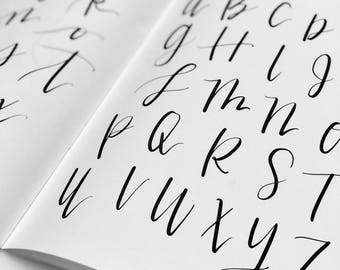 a B C D
g H I J
L m n o
P Q R S T
U V W X Y
Z